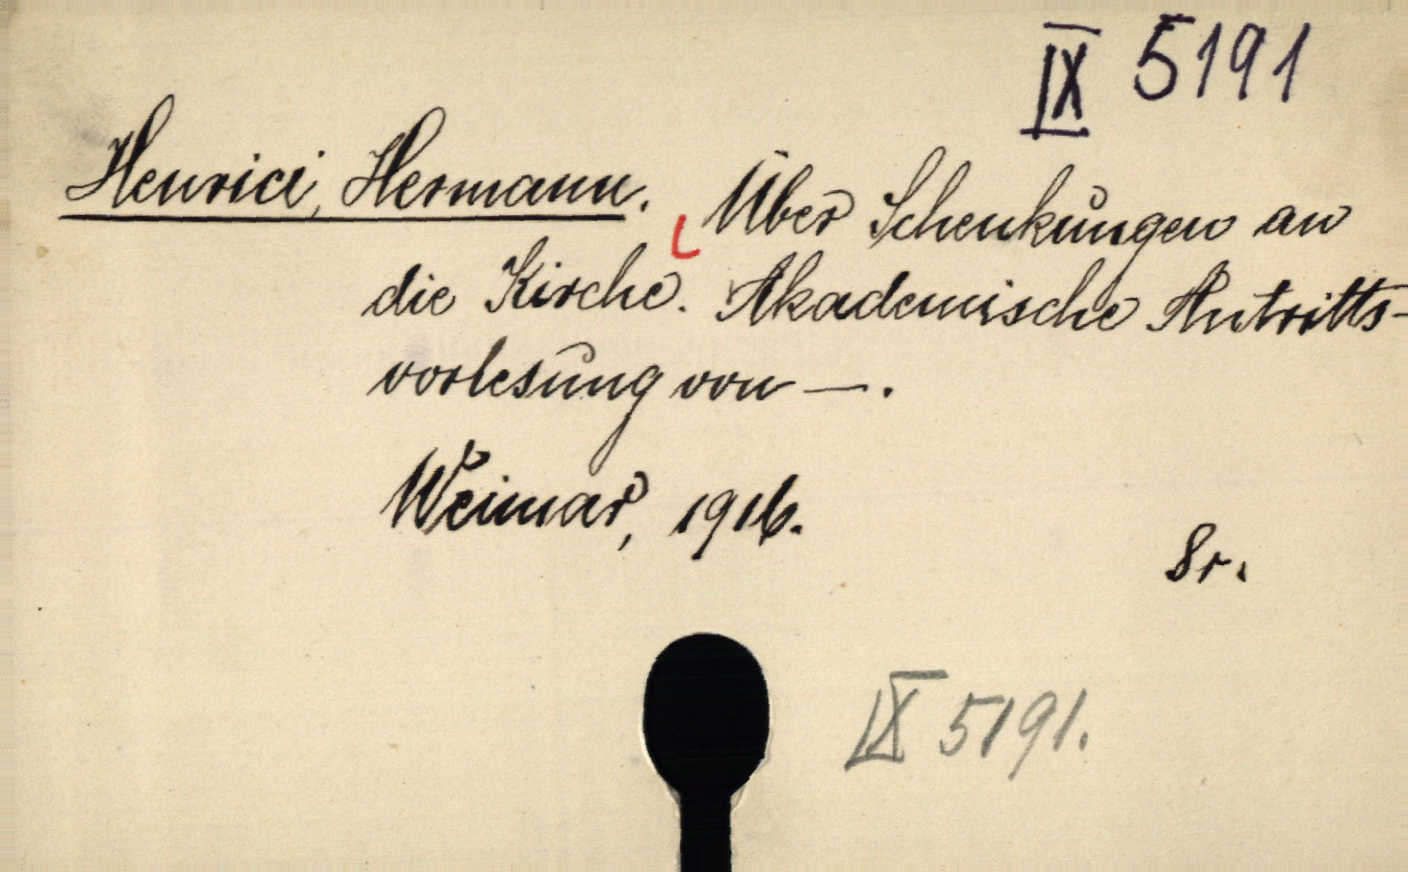 IX 5191
Henrici, Hermann. Über Schenkungen an
die Kirche. Akademische Antritts-
vorlesung von —.
Weimar, 1916.
8r.
IX 5191.